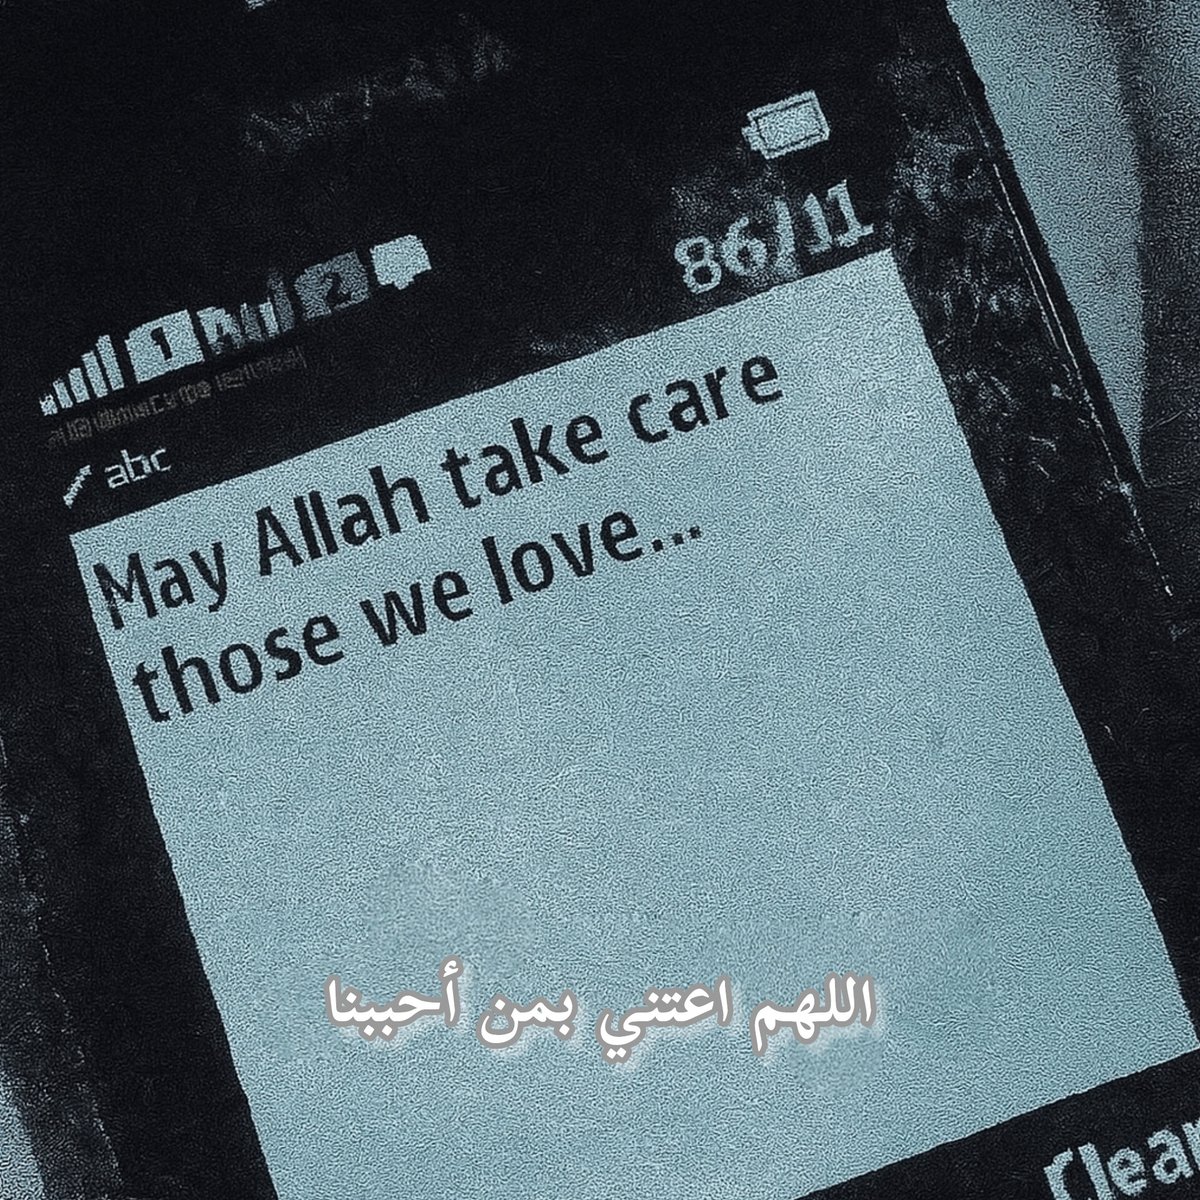 86/11
1
2
abc
May Allah take care
those we love...
اللهم اعتني بمن أحببنا
Clear